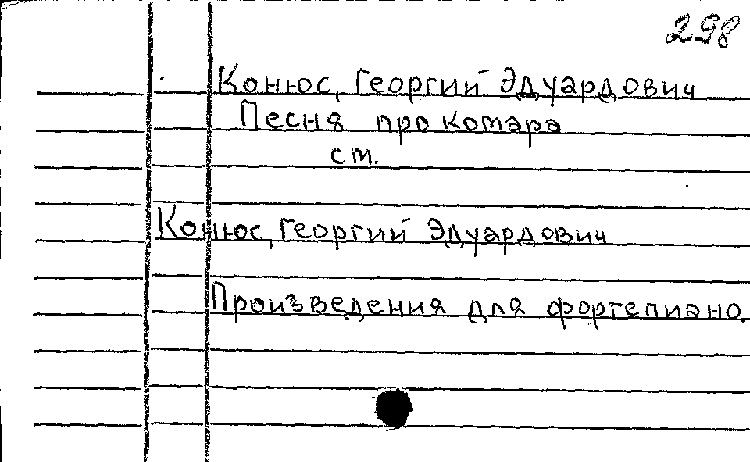 298
Конюс, Георгий Эдуардович
Песня про комара
см.
Конюс, Георгий Эдуардович
Произведения для фортепиано.